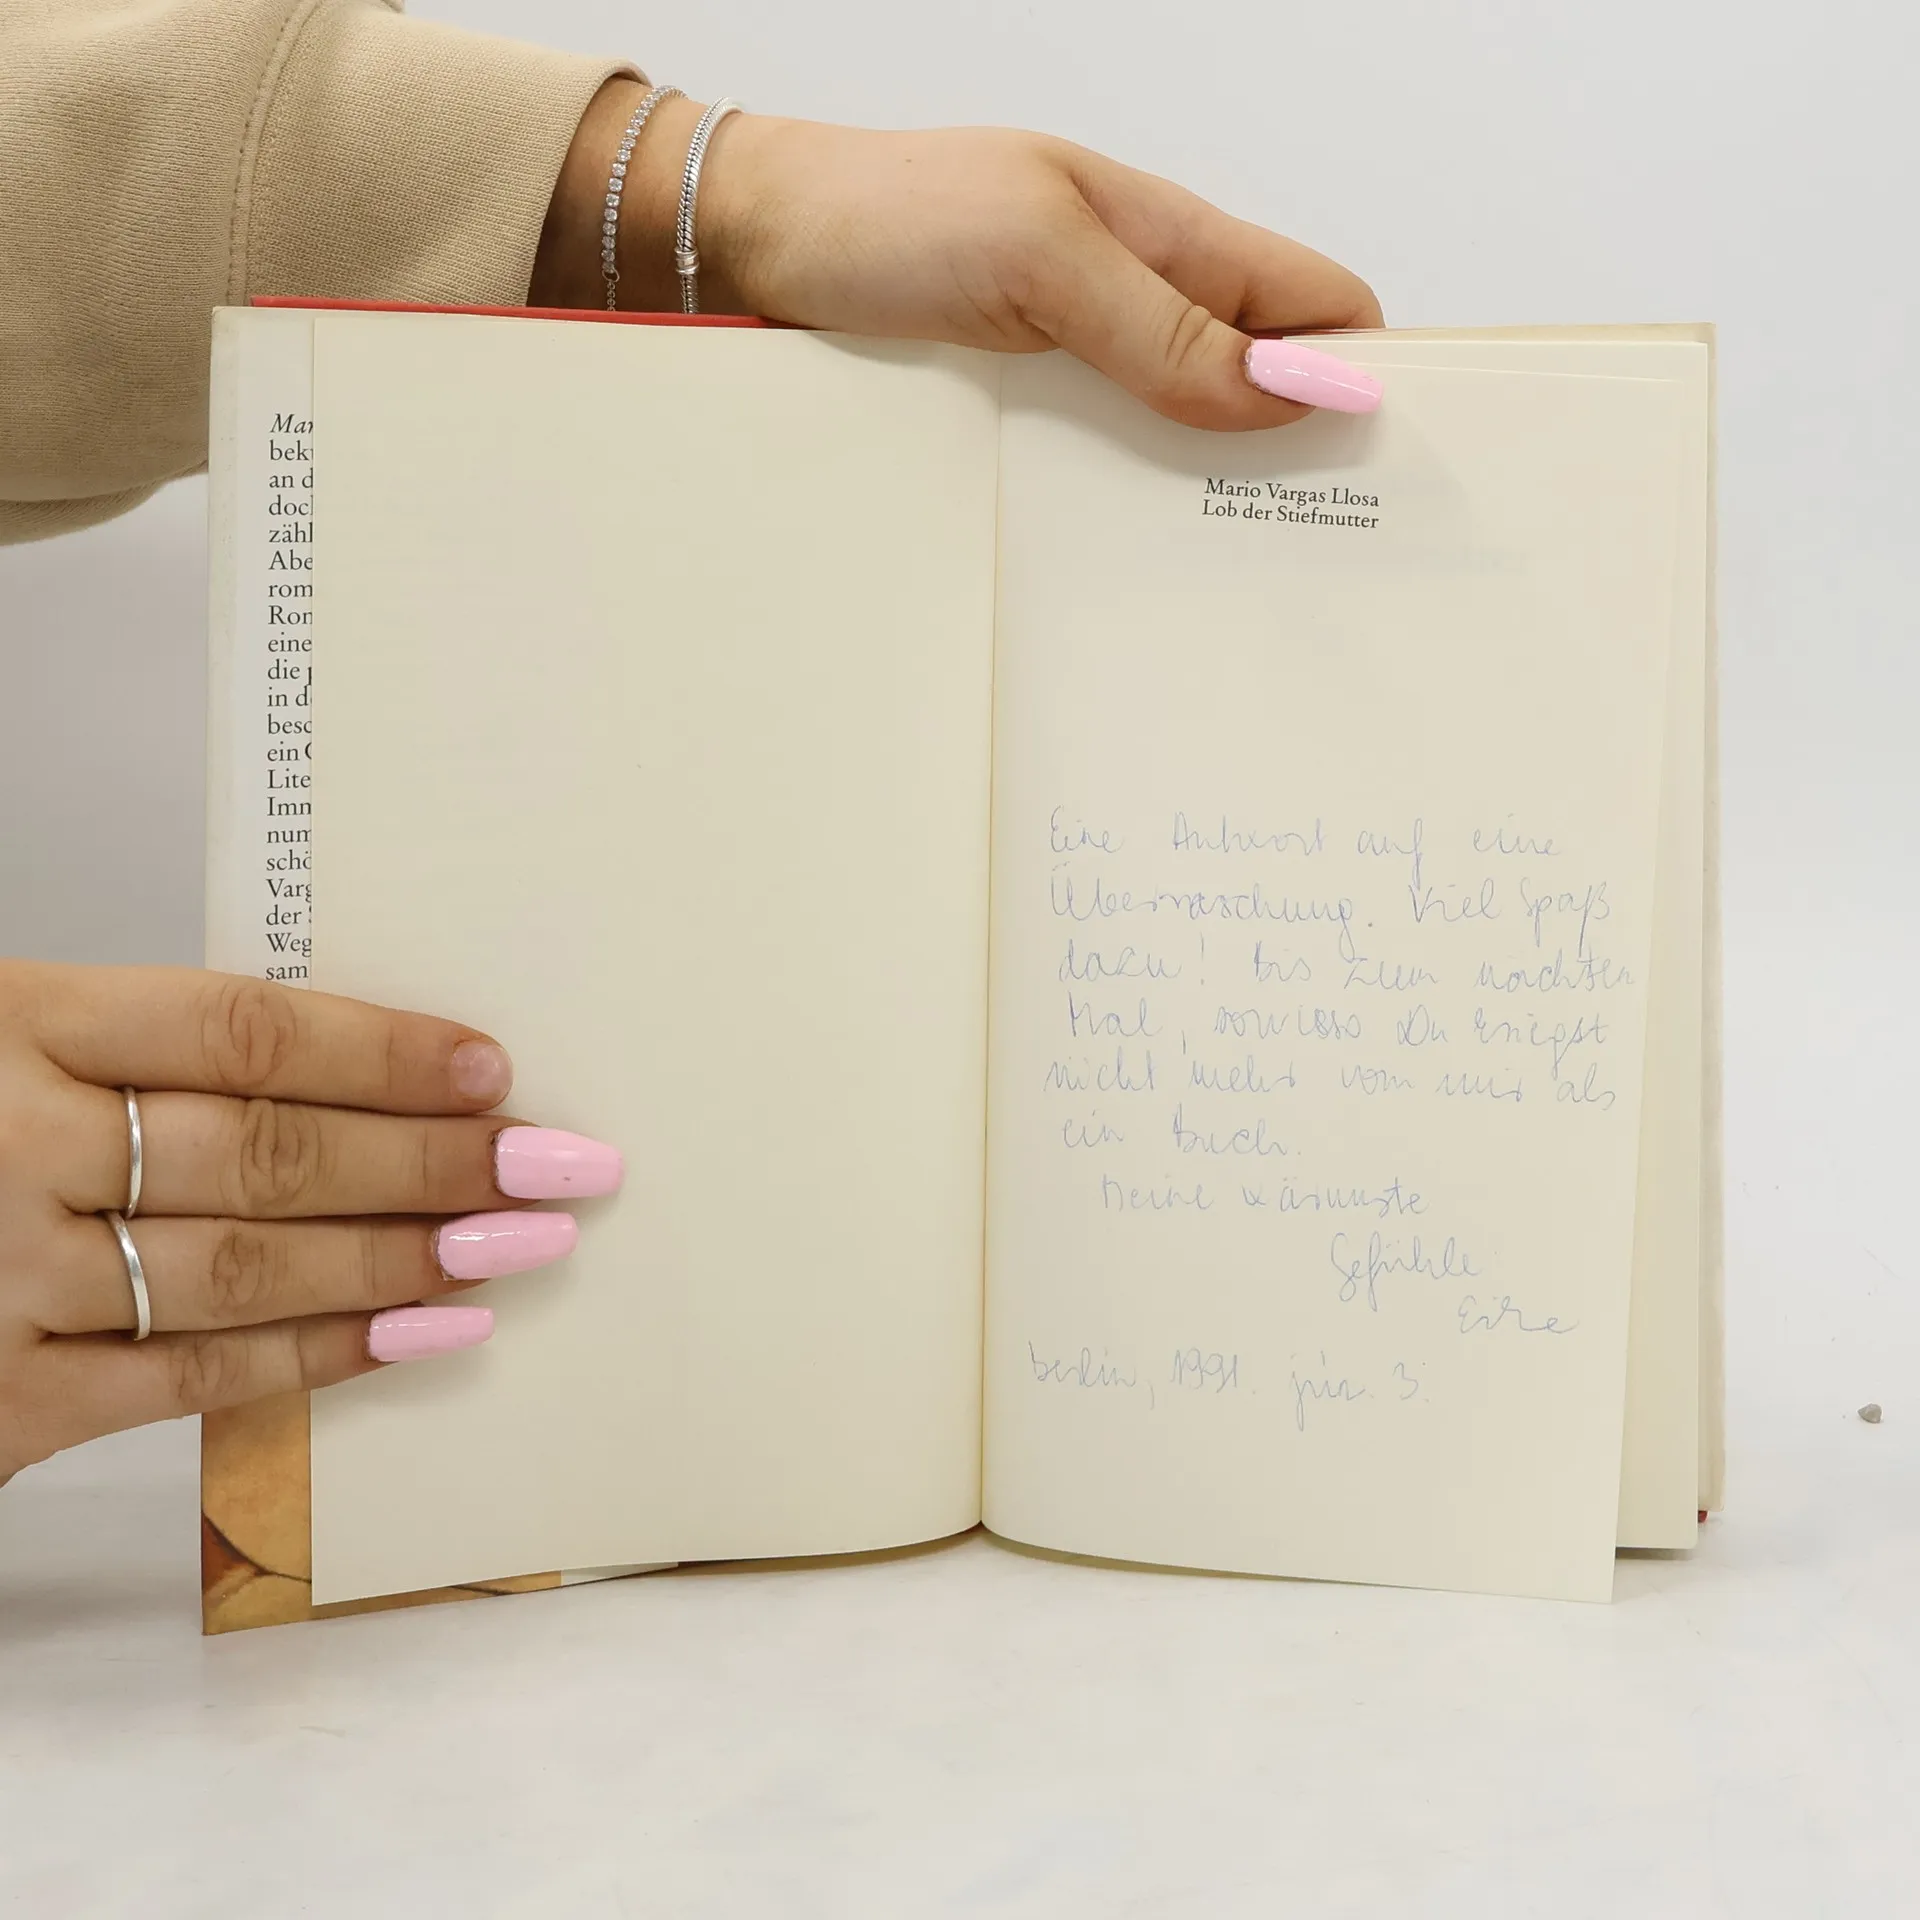 Mar
bek
an d
doc
zähl
Abe
rom
Ron
eine
die
in d
besc
ein
Lite
Imm
num
schö
Varg
der
Weg
sam
Mario Vargas Llosa
Lob der Stiefmutter
Eine Antwort auf eine
Überraschung. Viel Spaß
dazu! Bis zum nächsten
Mal, Du kriegst
nicht mehr von mir als
ein Buch.
Meine wärmste
Gefühle
Berlin, 1991. jún. 3.